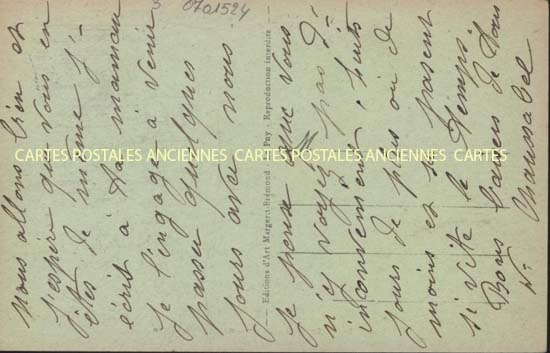 0701524
Nous allons bien et
j'espère que vous en
êtes de même. J'
écrit à ta maman
je l'engage à venir
passer quelques
jours avec nous
je pense que vous
n'y voyez pas d'
inconvenient, huit
jours de plus ou de
moins et se passent
si vite le temps.
Bons baisers de tous
Editions d'Art Margerit-Brémond - Le Puy - Reproduction Interdite
CARTES POSTALES ANCIENNES CARTES POSTALES ANCIENNES CARTES POSTALES ANCIENNES CARTES POSTALES